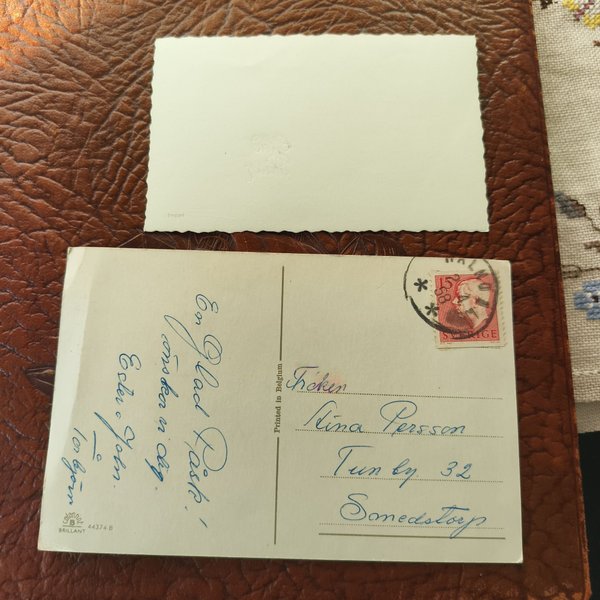 En Glad Påsk!
önskar vi dig.
Ester o John.
o
Torbjörn
BRILLANT 44374 B
Printed in Belgium
MALMÖ
2 4
58
15
SVERIGE
Fröken
Stina Persson
Tunby 32
Smedstorp